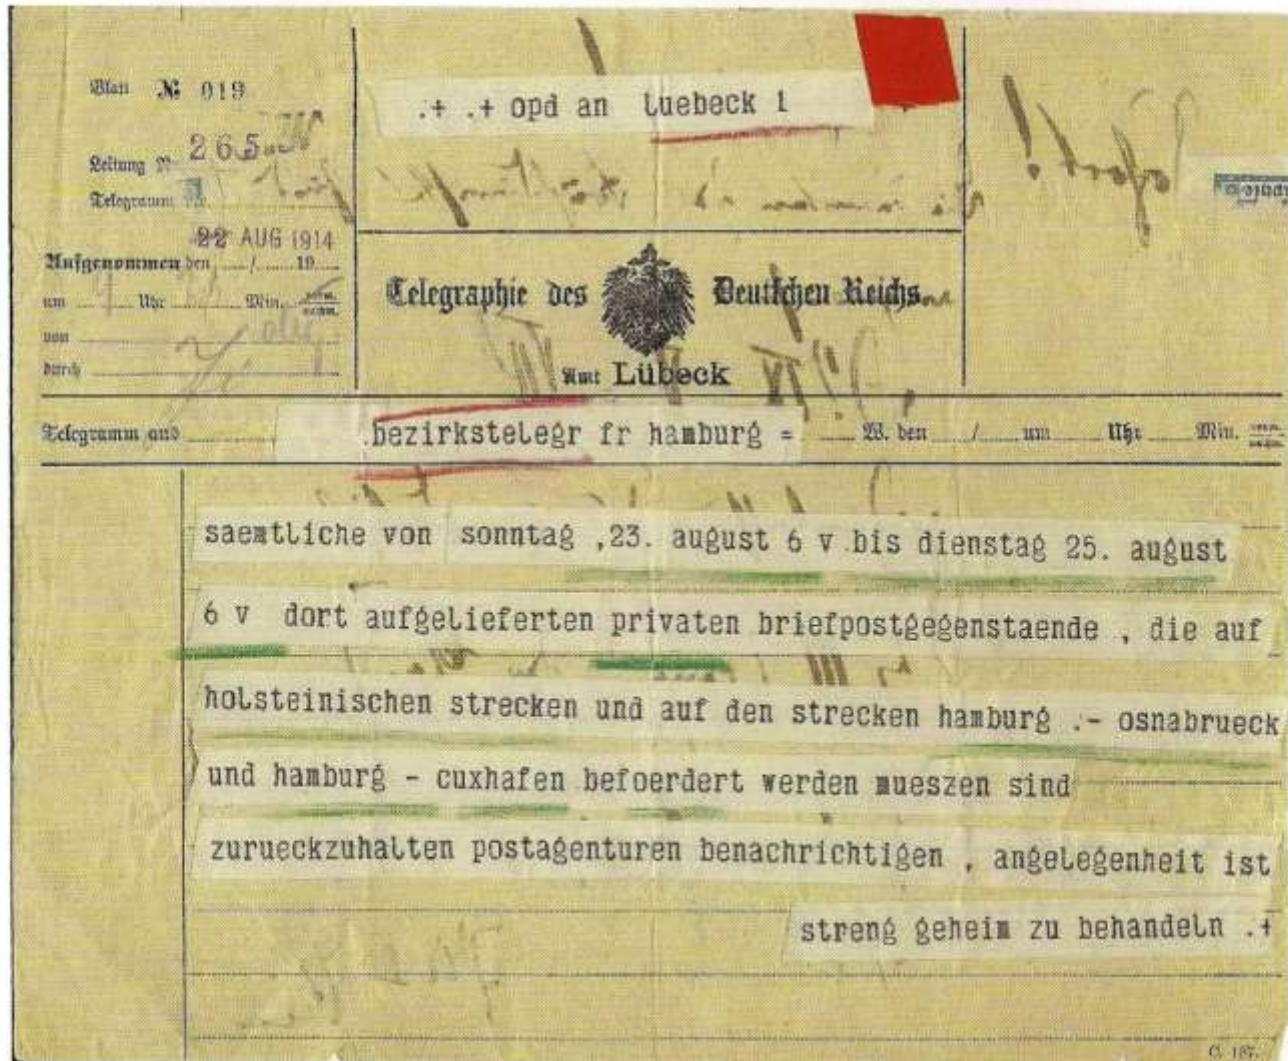 Blatt № 019
.+ .+ opd an luebeck 1
Leitung № 265
Telegramm Nr.
22 AUG 1914
Aufgenommen den / 19
um Uhr Min. vorm. nachm.
von
durch
Telegraphie des Deutschen Reichs.
Amt Lübeck
Telegramm aus .bezirkstelegr fr hamburg = W. den / um Uhr Min.
saemtliche von sonntag ,23. august 6 v .bis dienstag 25. august
6 v dort aufgelieferten privaten briefpostgegenstaende , die auf
holsteinischen strecken und auf den strecken hamburg .- osnabrueck
und hamburg - cuxhafen befoerdert werden mueszen sind
zurueckzuhalten postagenturen benachrichtigen , angelegenheit ist
streng geheim zu behandeln .+
C. 187.